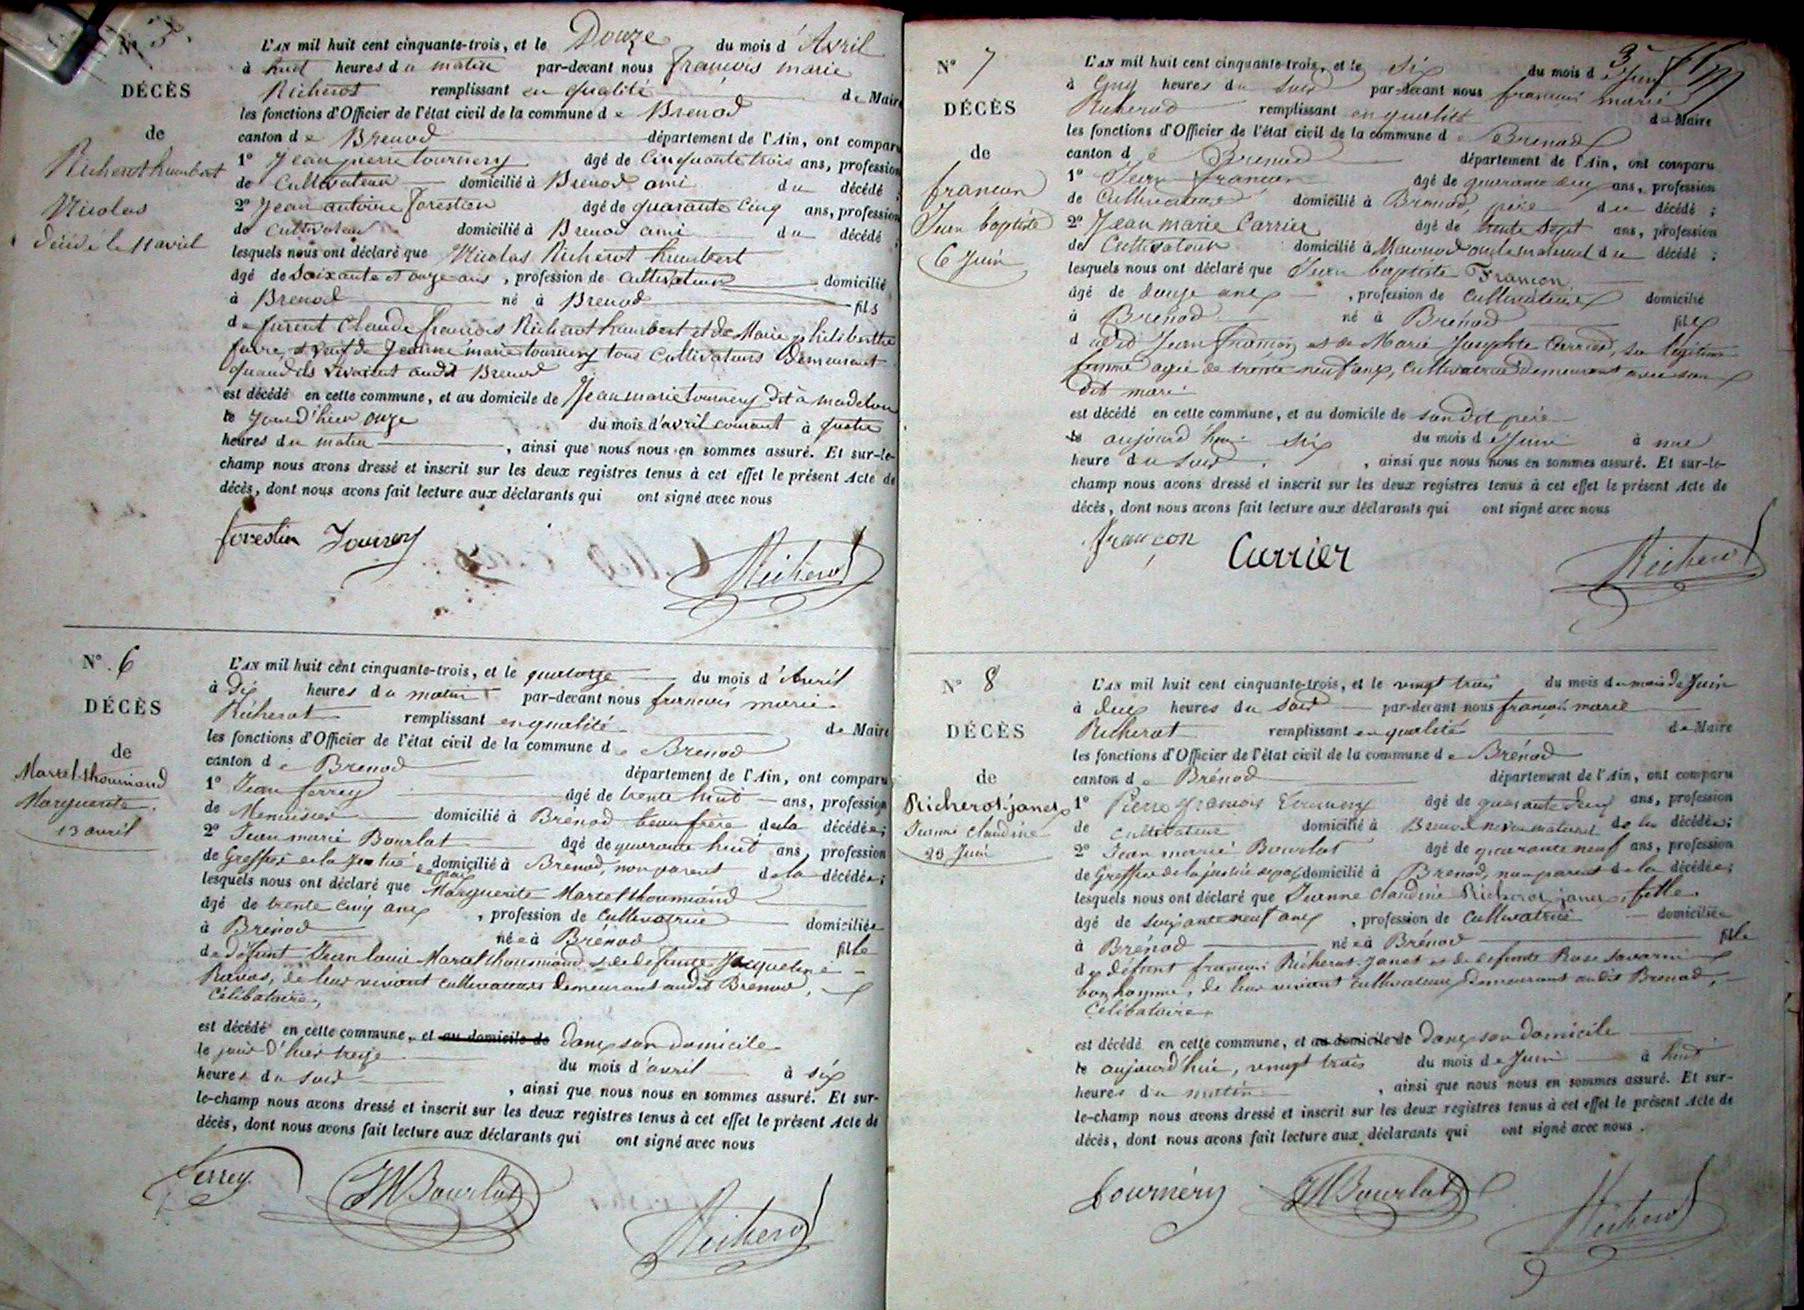 N° 5.
DÉCÈS
de
Richerot humbert
Nicolas
décédé le 11 avril
L'AN mil huit cent cinquante-trois, et le Douze du mois d'Avril
à huit heures du matin par-devant nous françois marie
Richerot remplissant en qualité de Maire
les fonctions d'Officier de l'état civil de la commune de Brenod
canton de Brenod département de l'Ain, ont comparu
1° Jean pierre tournery âgé de Cinquante trois ans, profession
de Cultivateur domicilié à Brenod ami du décédé ;
2° Jean antoine forestier âgé de quarante cinq ans, profession
de Cultivateur domicilié à Brenod ami du décédé
lesquels nous ont déclaré que Nicolas Richerot humbert
âgé de soixante et onze ans, profession de Cultivateur domicilié
à Brenod né à Brenod fils
de furent Claude françois Richerot humbert et de Marie philiberthe
favre, et veuf de Jeanne marie tournery tous Cultivateurs demeurant
quand ils vivaient audit Brenod
est décédé en cette commune, et au domicile de Jean marie tournery dit à madelon
le Jour d'hier onze du mois d'avril courant à quatre
heures du matin, ainsi que nous nous en sommes assuré. Et sur-le-
champ nous avons dressé et inscrit sur les deux registres tenus à cet effet le présent Acte de
décès, dont nous avons fait lecture aux déclarants qui ont signé avec nous
forestier Tournery
Richerot
N° 6
DÉCÈS
de
Martel-thoumiand
Marguerite.
13 avril
L'AN mil huit cent cinquante-trois, et le quatorze du mois d'Avril
à Dix heures du matin par-devant nous françois marie
Richerot remplissant en qualité de Maire
les fonctions d'Officier de l'état civil de la commune de Brenod
canton de Brenod département de l'Ain, ont comparu
1° Jean ferrey âgé de trente huit ans, profession
de Menuisier domicilié à Brenod beau frère de la décédée;
2° Jean marie Bourlat âgé de quarante huit ans, profession
de Greffier de la justice de paix domicilié à Brenod, non parent de la décédée;
lesquels nous ont déclaré que Marguerite Martel thoumiand
âgé de trente cinq ans, profession de Cultivatrice domiciliée
à Brénod née à Brénod fille
de défunt Jean louis Martel thoumiand et de défunte Jacqueline
Ravas, de leur vivant cultivateurs demeurant audit Brenod,
Célibataire,
est décédé en cette commune, et au domicile de dans son domicile
le jour d'hier treize du mois d'avril à six
heures du soir, ainsi que nous nous en sommes assuré. Et sur-
le-champ nous avons dressé et inscrit sur les deux registres tenus à cet effet le présent Acte de
décès, dont nous avons fait lecture aux déclarants qui ont signé avec nous
ferrey JMBourlat
Richerot
3
N° 7
DÉCÈS
de
françon
Jean baptiste
6 Juin
L'AN mil huit cent cinquante-trois, et le six du mois de Juin
à Cinq heures du soir par-devant nous françois marie
Richerod remplissant en qualité de Maire
les fonctions d'Officier de l'état civil de la commune de Brenod
canton de Brenod département de l'Ain, ont comparu
1° Jean françon âgé de quarante deux ans, profession
de Cultivateur domicilié à Brenod, père du décédé ;
2° Jean marie Carrier âgé de trente sept ans, profession
de Cultivateur domicilié à oncle maternel du décédé ;
lesquels nous ont déclaré que Jean baptiste Françon,
âgé de douze ans, profession de Cultivateur domicilié
à Brénod né à Brénod fils
dudit Jean françon et de Marie Josephte Carrier, sa légitime
femme agée de trente neuf ans, Cultivatrice demeurant avec son
dit mari
est décédé en cette commune, et au domicile de son dit père
le aujourd'hui six du mois de Juin à une
heure du soir, ainsi que nous nous en sommes assuré. Et sur-le-
champ nous avons dressé et inscrit sur les deux registres tenus à cet effet le présent Acte de
décès, dont nous avons fait lecture aux déclarants qui ont signé avec nous
françon Carrier
Richerot
N° 8
DÉCÈS
de
Richerot-janet
Jeanne claudine
23 Juin
L'AN mil huit cent cinquante-trois, et le vingt trois du mois du mois de Juin
à deux heures du soir par-devant nous françois marie
Richerot remplissant en qualité de Maire
les fonctions d'Officier de l'état civil de la commune de Brénod
canton de Brénod département de l'Ain, ont comparu
1° Pierre françois Tournery âgé de quarante deux ans, profession
de cultivateur domicilié à Brenod neveu maternel de la décédée;
2° Jean marie Bourlat âgé de quarante neuf ans, profession
de Greffier de la justice de paix domicilié à Brenod, non parent de la décédée;
lesquels nous ont déclaré que Jeanne claudine Richerot janet, fille
âgé de soixante neuf ans, profession de Cultivatrice domiciliée
à Brénod née à Brénod fille
de défunt françois Richerot-Janet et de défunte Rose Savarin
bonhomme, de leur vivant cultivateurs demeurant audit Brenod,
Célibataire
est décédé en cette commune, et au domicile de dans son domicile
le aujourd'hui, vingt trois du mois de Juin à huit
heures du matin, ainsi que nous nous en sommes assuré. Et sur-
le-champ nous avons dressé et inscrit sur les deux registres tenus à cet effet le présent Acte de
décès, dont nous avons fait lecture aux déclarants qui ont signé avec nous.
tournéry JMBourlat
Richerot